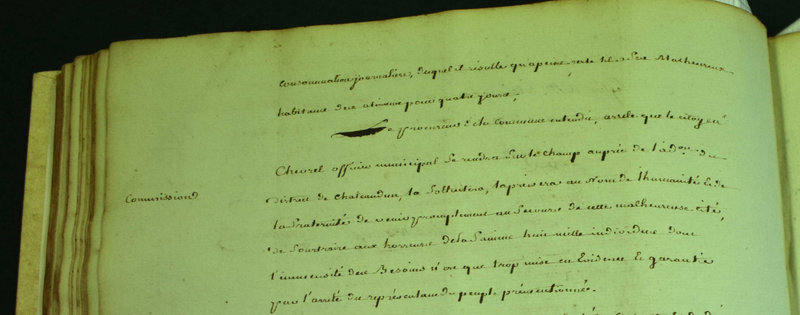 consommation journaliere, duquel il resulte qu'a peine reste til a Ses Malheureux
habitans des alimens pour quatre jours,
Le procureur de la Commune entendu, arrête que le citoyen
Chevrel officier municipal Se rendra Sur le Champ auprès de l'adon. du
Commissiond
District de Chateaudun, la Sollicitera, la pressera au Nom de l'humanité & de
la fraternité de venir promptement au Secours de cette malheureuse cité,
de Soustraire aux horreurs de la famine huit mille individus dont
l'immensité des Besoins n'est que trop mise en Evidence & garantie
par l'arrêté du représentant du peuple présentionnée.